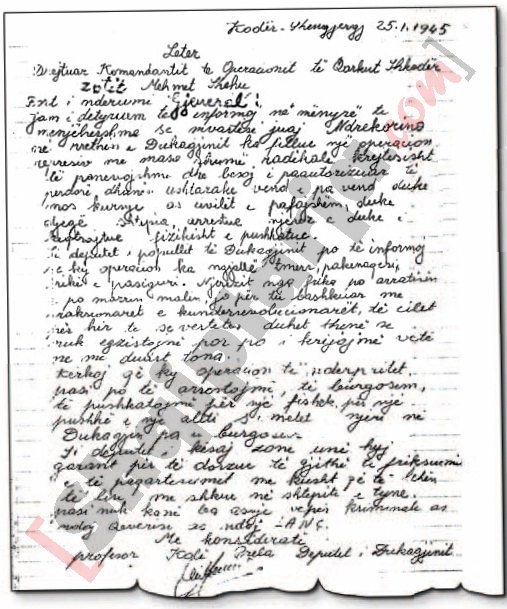 Kodër-Shengjergj 25.1.1945
Leter
Drejtuar Komandantit te Operacionit të Qarkut Shkodër
Zotit Mehmet Shehu
Fort i nderuemi Gjeneral!
jam i detyrum te informoj në mënyrë te
menjëhershme se mvartësi juaj Ndrekorino
në rrethin e Dukagjinit ka fillue një operacion
represiv me masa shumë radikale krejtësisht
të panevojshme dhe besoj i paautorizuar të
perdori dhunën ushtarake vend e pa vend duke
mos kursye as civilët e pafajshëm, duke
djegë shtëpia, arrestue njerëz e duke i
keqtrajtue fizikisht e pushkatue.
Si deputet i popullit të Dukagjinit po të informoj
se ky operacion ka ngjallë tmerr, pakënaqësi,
frikë e pasiguri. Njerëzit nga frika po arratisen
e po marrin malin jo për tu bashkuar me
reaksionarët e kundërrevolucionarët, të cilët
për hir te se vertetes duhet thenë se
nuk egzistojnë por po i krijojmë vetë
ne me duart tona.
Kërkoj që ky operacion të nderpritet,
pasi po të arrestojmë, të burgosem,
të pushkatojmë për një fishek, për një
pushkë i një allti s'metet njeri në
Dukagjin pa u burgosur
Si deputet i kësaj zone unë hyj
garant për të dorzue të gjithë te frikësuemi
e të paqartësuemet me kusht që të lihen
të lirë me shkue në shtëpitë e tyne,
pasi nuk kanë ba asnje vepër kriminale as
ndaj Qeverisë as ndaj -ANÇ.
Me konsideratë
profesor Kolë Prela Deputet i Dukagjinit
[Shqiptarja.com]